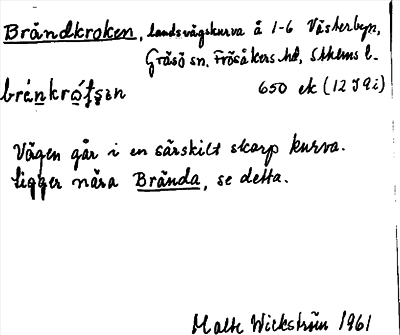 Brändkroken, landsvägskurva å 1-6 Västerbyn,
Gräsö sn, Frösåkers hd, Sthlms l.
650 ek (12 J 9 i)
Vägen går i en särskilt skarp kurva.
ligger nära Brända, se detta.
Malte Wickström 1961